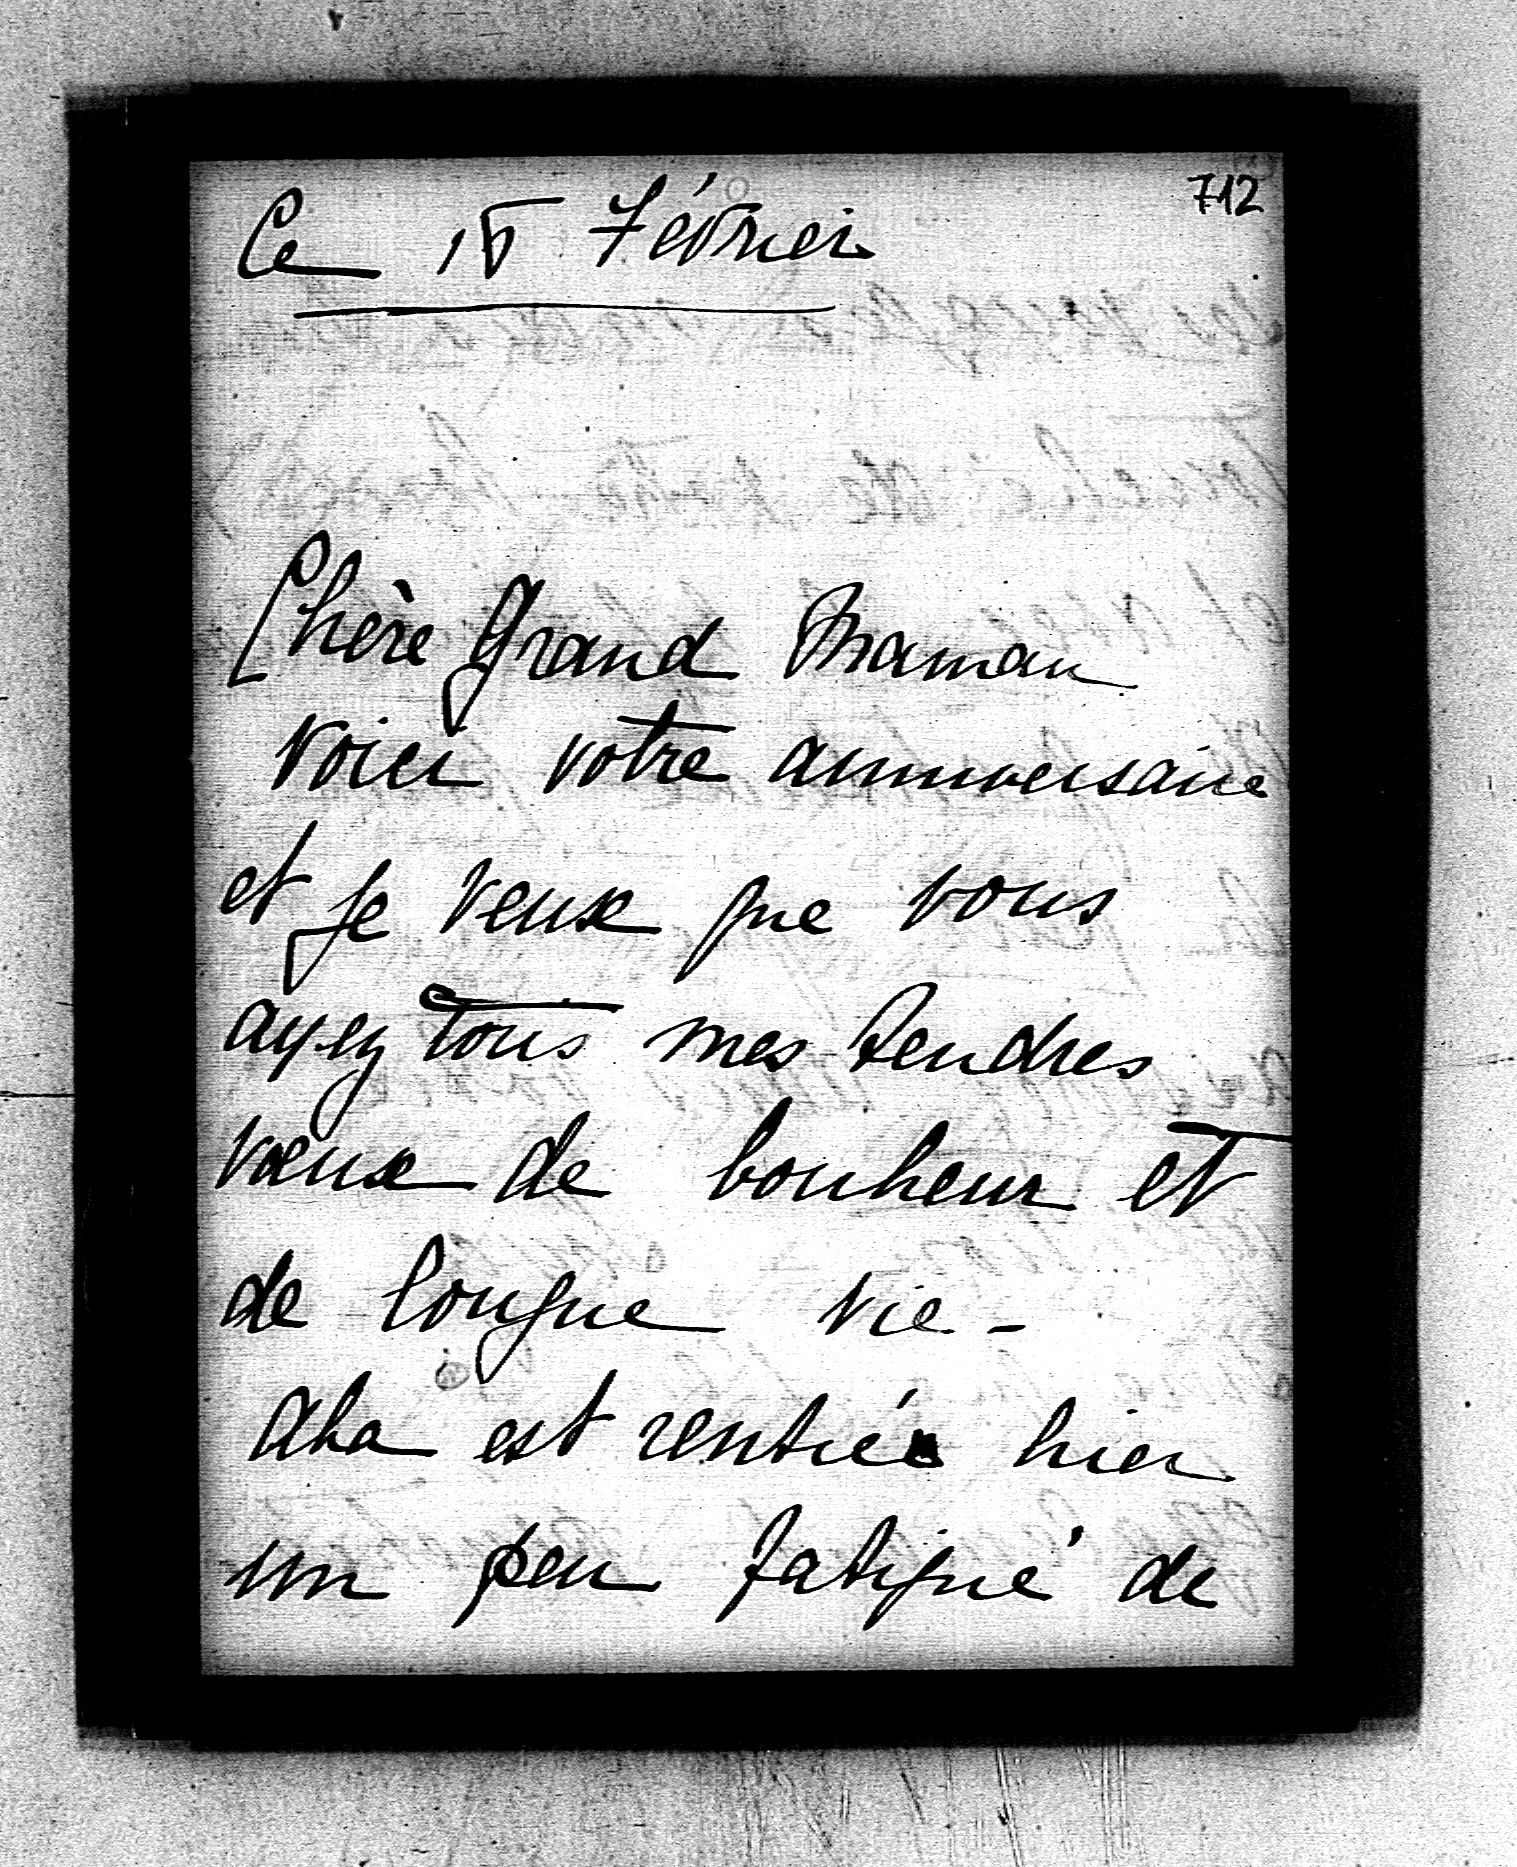 712
Ce 15 Février
Chère Grand Maman
voici votre anniversaire
et je veux que vous
ayez tous mes tendres
vœux de bonheur et
de longue vie -
Aha est rentré hier
un peu fatigué de